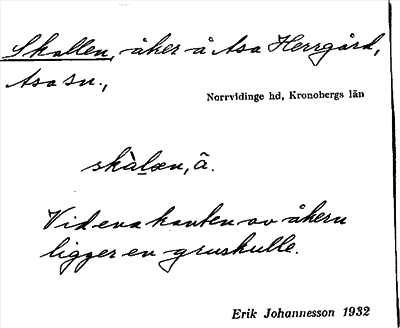 Skallen, åker å Asa Herrgård,
Asa sn.,
Norrvidinge hd, Kronobergs län
skàlæn, ā.
Vid ena kanten av åkern
ligger en gruskulle.
Erik Johannesson 1932